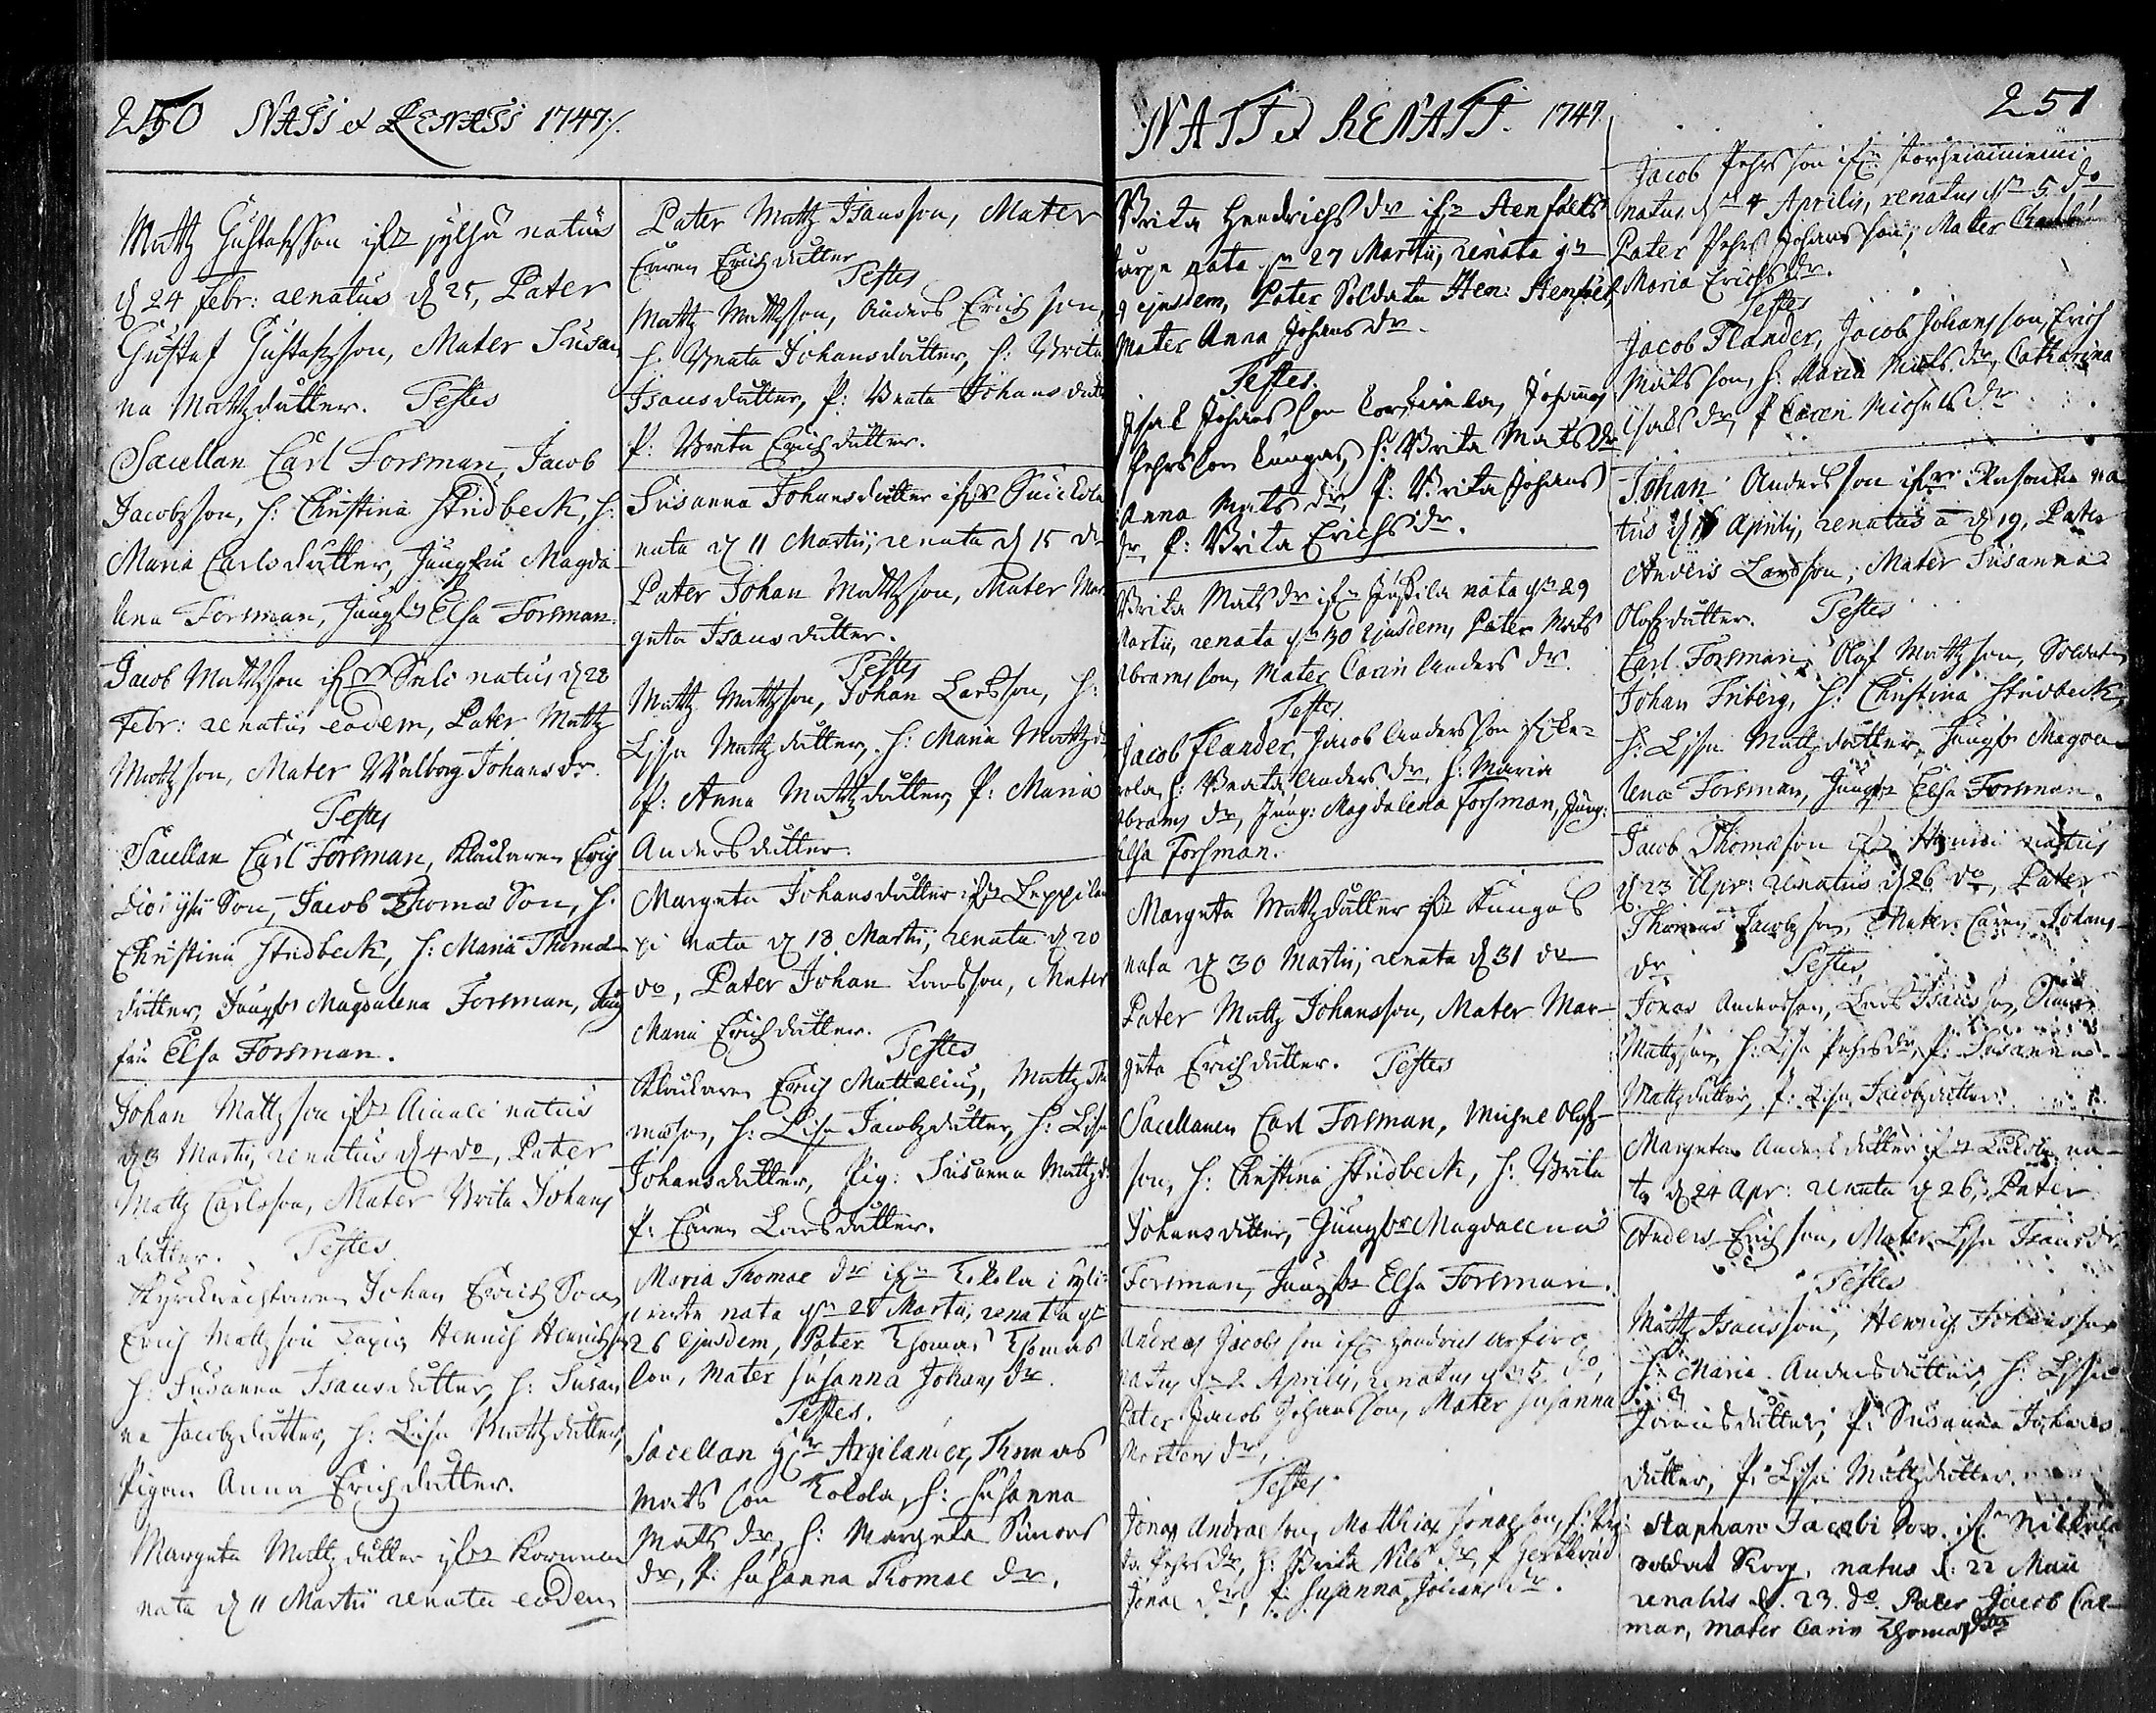 250 NATI et RENATI 1747.
Mattz Gustafsson ifr jylhä natus
d 24 Febr: renatus d 25, Pater
Gustaf Gustafsson, Mater Susan
na Mattzdutter. Testes
Sacellan Carl Forsman, Jacob
Jacobsson, h: Christina Stridbeck, h:
Maria Carlsdutter, Jungfru Magda
lena Forsman, Jungfr Elsa Forsman.
Jacob Mattsson ifr natus d 28
Febr: renatus eodem, Pater Mattz
Mattzson, Mater Walborg Johansdr.
Testes
Sacellan Carl Forsman, Klockaren Erich
Son, Jacob Thomas Son, h.
Christina Stridbeck, h: Maria Thomæ
dutter, Jungfr Magdalena Forsman, Jung
fru Elsa Forsman.
Johan Mattzson ifr natus
d 3 Martii, renatus d 4 do, Pater
Mattz Carlsson, Mater Brita Johans
dutter. Testes
Kyrckiowächtaren Johan Erich Son
Erich Mattzson Henrich Henrichson
h: Susanna Isacsdutter, h: Susan
na Jacobzdutter, h: Lisa Mattzdutter,
Pigan Anna Erichdutter.
Margeta Mattzdutter ifr
nata d 11 Martii renata eodem
Pater Mattz Isacsson, Mater
Caren Erichdutter
Testes
Mattz Mattzson, Anders Erichson,
h. Beata Johansdutter, h: Brita
Isacsdutter, P: Beata Johansdutter
P: Brita Erichdutter.
Susanna Johansdutter ifr
nata d 11 Martii, renata d 15 do
Pater Johan Mattzson, Mater Mar
geta Isacsdutter.
Testes
Mattz Mattzson, Johan Larsson, h:
Lisa Mattzdutter, h: Maria Mattzdr
P: Anna Mattzdutter, P: Maria
Andersdutter.
Margeta Johansdutter ifr Leppilam
pi nata d 18 Martii, renata d 20
do, Pater Johan Larsson, Mater
Maria Erichdutter.
Testes
Klockaren Erich Matthæius, Mattz Tho
mæson, h: Lisa Jacobzdutter, h: Lisa
Johansdutter, Pig: Susanna Mattzdr
P: Caren Larsdutter.
Maria Thomae dr ifrn Kokola i
nata d 25 Martii, renata d
26 ejusdem, Pater Thomas Thomas
son, Mater Susanna Johans dr.
Testes.
Sacellan Hr Argilander, Thomas
Mats son Kolola, h: Susanna
Matts dr, h: Margeta Simons
dr, P: Susanna Thomae dr.
NATI et RENATI. 1747.
Brita Hendrichs dr ifrn Stenfalks
nata d 27 Martii, renata d
ejusdem, Pater Soldaten Hen: Stenfelt
Mater Anna Johans dr.
Testes.
Isak Johans son Johannes
Pehrs son Cangas, h: Brita Mats dr
Anna Mats dr, P: Brita Johans
dr, P: Brita Erichs dr.
Brita Mats dr ifrn nata d 29
Martii, renata d 30 ejusdem, Pater Mats
Abramsson, Mater Carin Anders dr.
Testes.
Jacob Flander, Jacob Andersson
h: Beata Anders dr, h: Maria
Abrams dr, Jung: Magdalena Forsman, Jung:
Elsa Forsman.
Margeta Mattzdutter ifr Kangas
nata d 30 Martii, renata d 31 do
Pater Mattz Johansson, Mater Mar-
geta Erichdutter. Testes
Sacellanen Carl Forsman, Michel Olofs-
son, h: Christina Stridbeck, h: Brita
Johansdutter, Jungfr Magdalena
Forsman, Jungfr Elsa Forsman.
Andreas Jacobs son ifrn
natus d 2 Aprilis, renatus d 5 do,
Pater Jacob Johansson, Mater Susanna
Mårtens dr,
Testes
Jonas Andraeson, Matthias Jonaeson, h: Bri
ta Pehrs dr, h: Brita Nils dr, P Gertrud
Jonae dr, P: Susanna Johans dr.
251
Jacob Pehrs son ifrn
natus d 4 Aprilis, renatus d 5 do
Pater Pehr Johansson, Mater
Maria Erichs dr.
Testes
Jacob Flander, Jacob Johansson, Erich
Mats son, h: Maria Mats dr, Catharina
Isaks dr, P Caren Michels dr
Johan Andersson ifr na
tus d Aprilis, renatus d 19, Pater
Anders Larsson, Mater Susanna
Olofzdutter. Testes
Carl Forsman, Olof Mattzson, Soldaten
Johan Friberg, h: Christina Stridbeck,
h: Lisa Mattzdutter, Jungfr Magda-
lena Forsman, Jungfr Elsa Forsman.
Jacob Thomæson ifr natus
d 23 Apr: renatus d 26 do, Pater
Thomas Jacobzson, Mater Caren Johans-
dr Testes
Jonas Andersson, Lars Isacsson,
Mattzson, h: Lisa Pehrsdr, P: Susanna
Mattzdutter, P: Lisa Jacobzdutter.
Margeta Andersdutter ifr na-
ta d 24 Apr: renata d 26, Pater
Anders Erichson, Mater Lisa Isacsdr
Testes
Mattz Isacsson, Henrich Johansson
h: Maria Andersdutter, h: Lisa
Jonædutter, P: Susanna Johans
dutter, P: Lisa Mattzdutter.
Staphan Jacobi Son ifrn
soldat Skog, natus d: 22 Maii
renatus d. 23. do. Pater Jacob Cal-
mar, Mater Carin Thomasdr